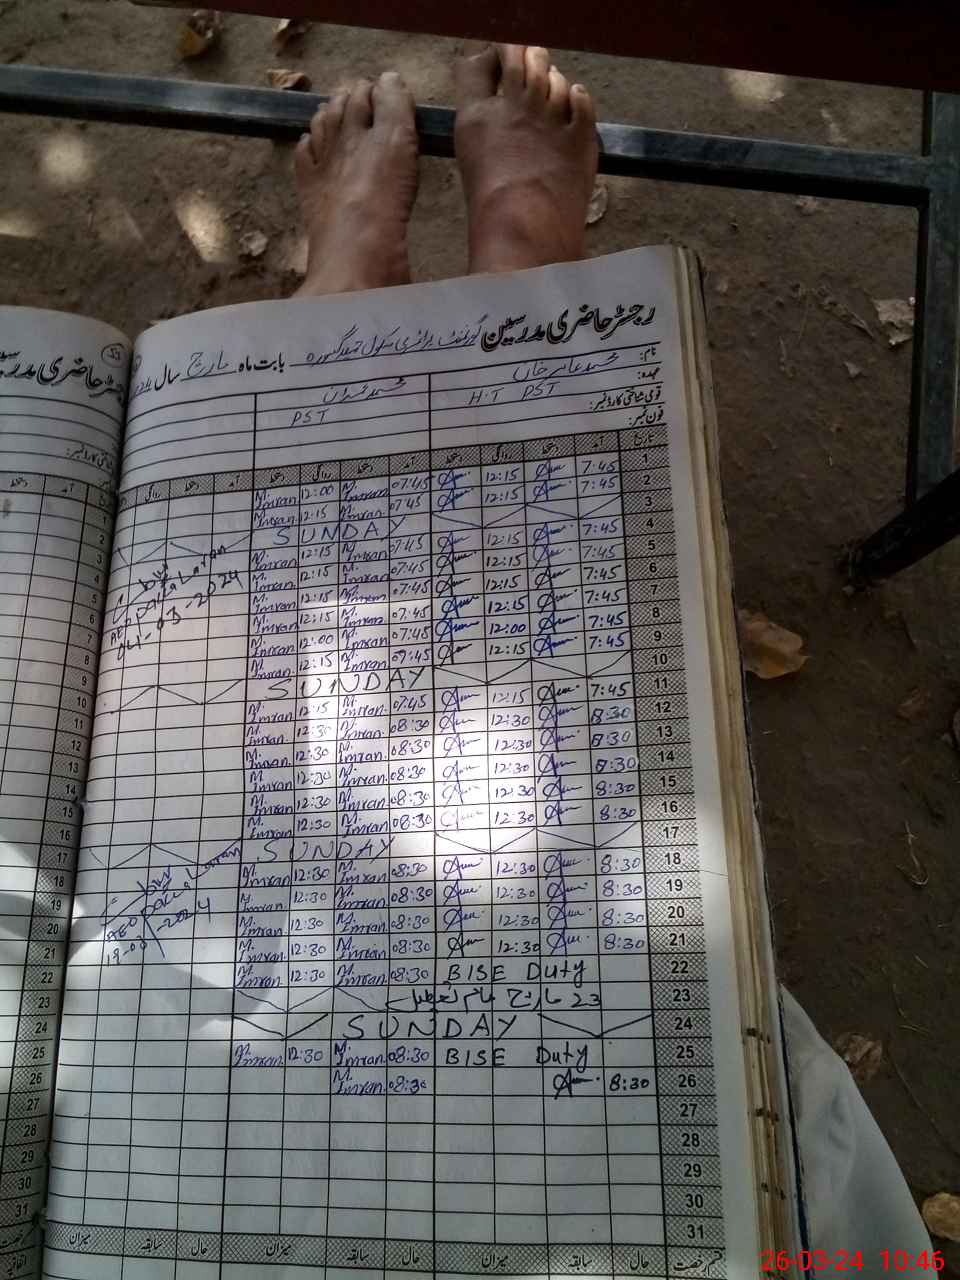 رجسٹر حاضری مدرسین گورنمنٹ پرائمری سکول بابت ماہ مارچ سال
نام: محمد عامر خان محمد عمران
عہدہ: H.T PST PST
قومی شناختی کارڈ نمبر:
فون نمبر:
تاریخ آمد دستخط روانگی دستخط آمد دستخط روانگی دستخط آمد دستخط روانگی
1 7:45 12:15 07:45 M. Imran 12:00 M. Imran
2 7:45 12:15 07:45 M. Imran 12:15 M. Imran
3 SUNDAY
4 7:45 12:15 07:45 M. Imran 12:15 M. Imran
5 7:45 12:15 07:45 M. Imran 12:15 M. Imran
6 7:45 12:15 07:45 M. Imran 12:15 M. Imran
7 7:45 12:15 07:45 M. Imran 12:15 M. Imran
8 7:45 12:00 07:45 M. Imran 12:00 M. Imran
9 7:45 12:15 07:45 M. Imran 12:15 M. Imran
AEO
04-03-2024
10 SUNDAY
11 7:45 12:15 07:45 M. Imran 12:15 M. Imran
12 8:30 12:30 08:30 M. Imran 12:30 M. Imran
13 8:30 12:30 08:30 M. Imran 12:30 M. Imran
14 8:30 12:30 08:30 M. Imran 12:30 M. Imran
15 8:30 12:30 08:30 M. Imran 12:30 M. Imran
16 8:30 12:30 08:30 M. Imran 12:30 M. Imran
17 SUNDAY
18 8:30 12:30 08:30 M. Imran 12:30 M. Imran
19 8:30 12:30 08:30 M. Imran 12:30 M. Imran
20 8:30 12:30 08:30 M. Imran 12:30 M. Imran
21 8:30 12:30 08:30 M. Imran 12:30 M. Imran
AEO
19-03-2024
22 BISE Duty 08:30 M. Imran 12:30 M. Imran
23 23 مارچ عام تعطیل
24 SUNDAY
25 BISE Duty 08:30 M. Imran 12:30 M. Imran
26 8:30 08:30 M. Imran
27
28
29
30
31
قسم رخصت حال سابقہ میزان حال سابقہ میزان حال سابقہ میزان
55
1
2
3
4
5
6
7
8
9
10
11
12
13
14
15
16
17
18
19
20
21
22
23
24
25
26
27
28
29
30
31
26-03-24 10:46